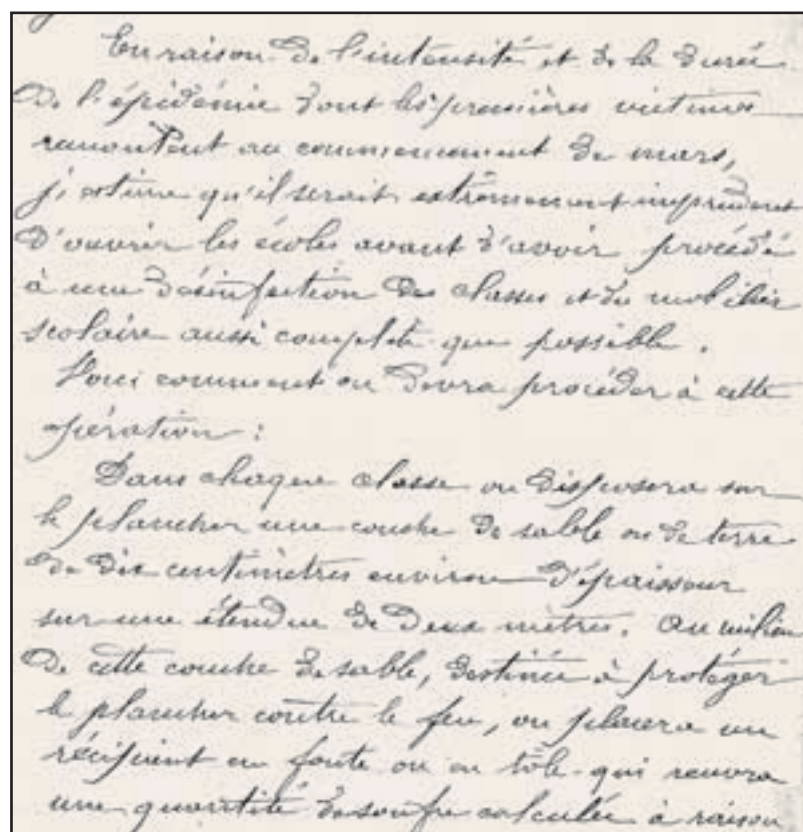 En raison de l'intensité et de la durée
de l'épidémie dont les premières victimes
remontent au commencement de mars,
j'estime qu'il serait extrêmement imprudent
d'ouvrir les écoles avant d'avoir procédé
à une désinfection des classes et du mobilier
scolaire aussi complète que possible.
Voici comment on devra procéder à cette
opération :
Dans chaque classe on disposera sur
le plancher une couche de sable ou de terre
de dix centimètres environ d'épaisseur
sur une étendue de deux mètres. Au milieu
de cette couche de sable, destinée à protéger
le plancher contre le feu, on placera un
récipient en fonte ou en tôle qui recevra
une quantité de soufre calculée à raison